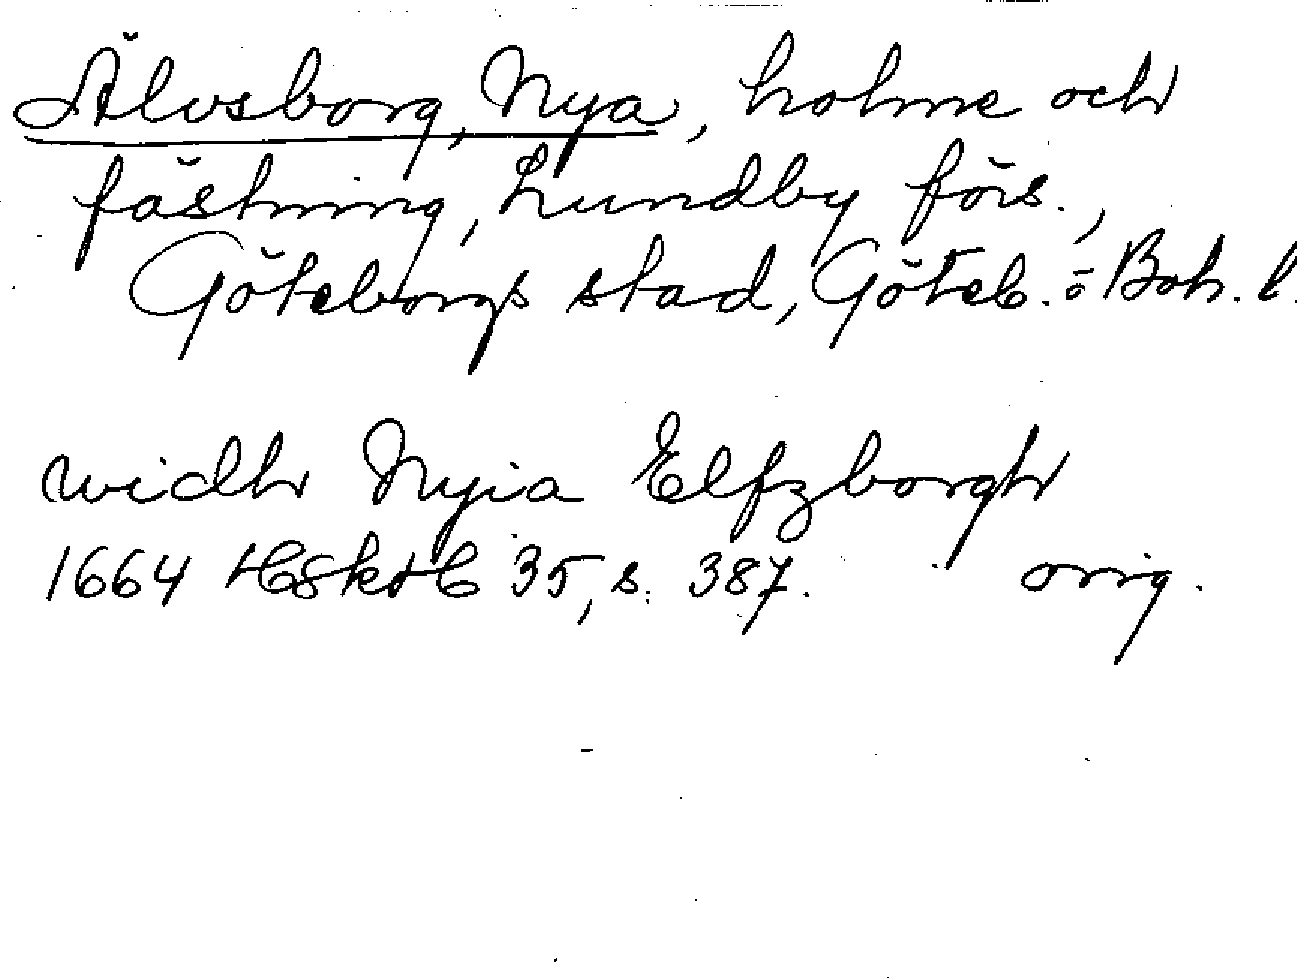 Älvsborg, Nya, holme och
fästning, Lundby förs.,
Göteborgs stad, Göteb. o Boh. l.
widh Nyia Elfzborgh
1664 HSkoC 35, s. 387. orig.